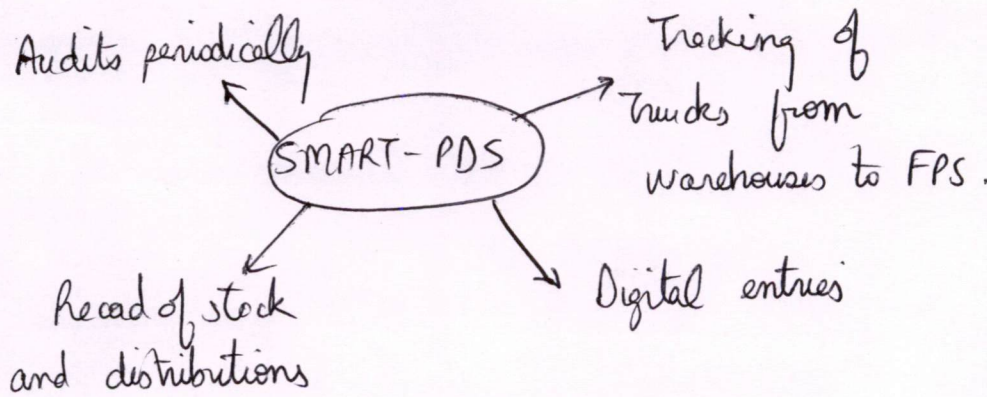 Audits periodically
Tracking of
Trucks from
warehouses to FPS.
SMART-PDS
Record of stock
and distributions
Digital entries